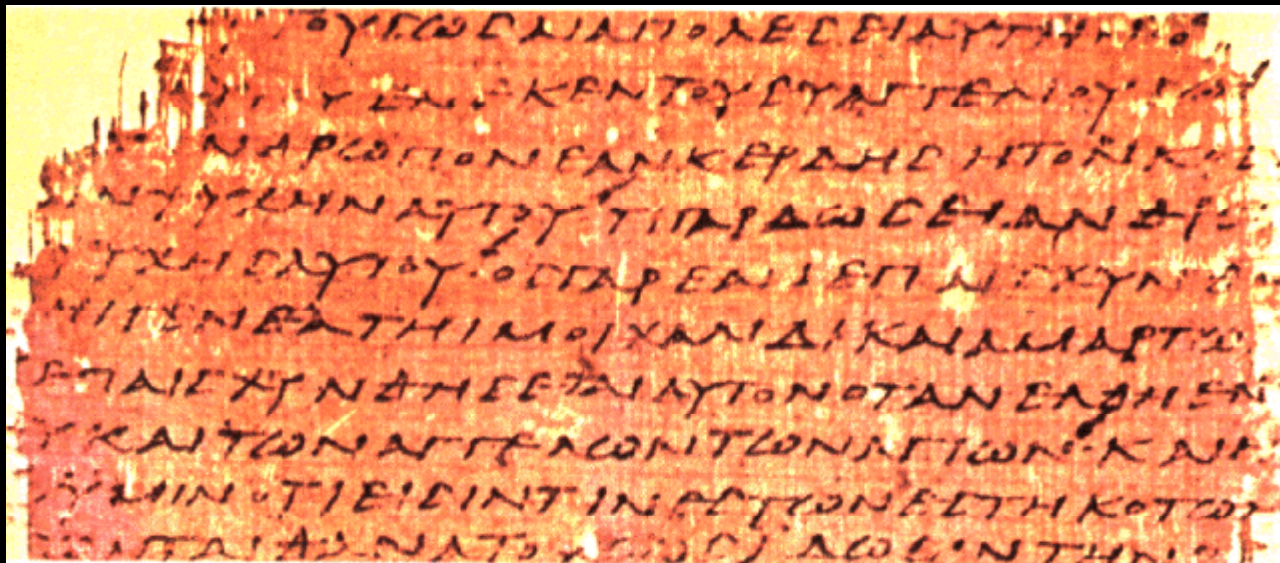 ΤΟΥ ϹΩϹΑΙ ΑΠΟΛΕϹΕΙ ΑΥΤΗΝ
ΕΝΕΚΕΝ ΤΟΥ ΕΥΑΓΓΕΛΙΟΥ
ΑΝΘΡΩΠΟΝ ΕΑΝ ΚΕΡΔΗϹΗ ΤΟΝ ΚΟϹ
ΨΥΧΗΝ ΑΥΤΟΥ ΤΙ ΓΑΡ ΔΩϹΕΙ ΑΝΘΡ
ΨΥΧΗϹ ΑΥΤΟΥ · ΟϹ ΓΑΡ ΕΑΝ ΕΠΑΙϹΧΥΝΘ
ΓΕΝΕΑ ΤΗΙ ΜΟΙΧΑΛΙΔΙ ΚΑΙ ΑΜΑΡΤΩ
ΕΠΑΙϹΧΥΝΘΗϹΕΤΑΙ ΑΥΤΟΝ ΟΤΑΝ ΕΛΘΗ ΕΝ
ΚΑΙ ΤΩΝ ΑΓΓΕΛΩΝ ΤΩΝ ΑΓΙΩΝ · ΚΑΙ
ΥΜΙΝ ΟΤΙ ΕΙϹΙΝ ΤΙΝΕϹ ΤΩΝ ΕϹΤΗΚΟΤΩ
ΘΑΝΑΤΟΥ ΙΔΩϹΙΝ ΤΗΝ